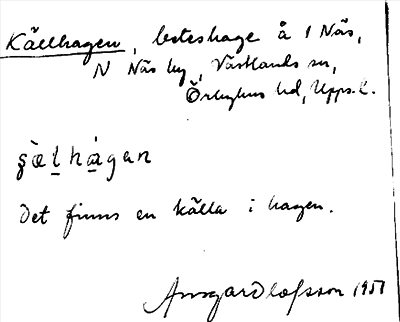 Källhagen, beteshage å 1 Näs,
N Näs by, Västlands sn,
Örbyhus hd, Upps. l.
s̀ælhágan
Det finns en källa i hagen.
Ansgar Olofsson 1951